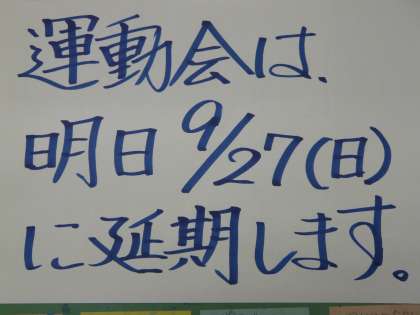 運動会は、
明日9/27(日)
に延期します。